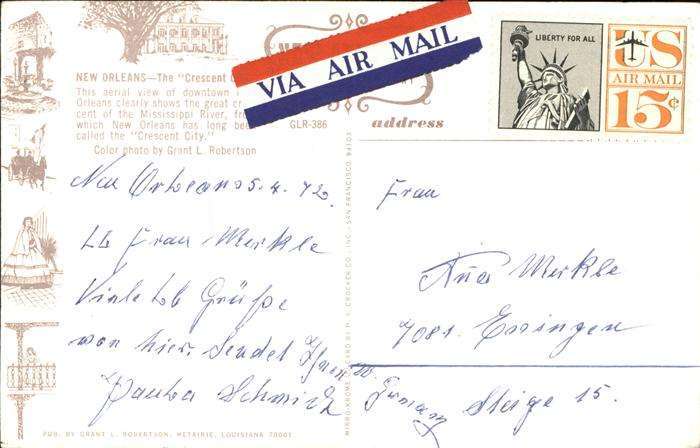 VIA AIR MAIL
LIBERTY FOR ALL
US
AIR MAIL
15¢
NEW ORLEANS—The "Crescent
This aerial view of downtown
Orleans clearly shows the great
cent of the Mississippi River,
which New Orleans has long
called the "Crescent City."
Color photo by Grant L. Robertson
GLR-386
address
New Orleans 5. 4. 72.
Lb Frau Merkle
Viele lb Grüße
von hier. Sendet Ihnen
Paula Schmidt
Frau
Merkle
7081 Essingen
Steige 15.
Germany
MIRRO-KROME CARD BY H. S. CROCKER CO., INC., SAN FRANCISCO
PUB. BY GRANT L. ROBERTSON, METAIRIE, LOUISIANA 70001